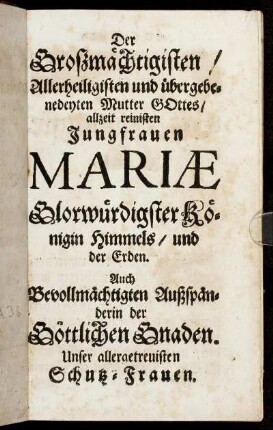 Der
Großmächtigisten /
Allerheiligisten und übergebe-
nedeyten Mutter GOttes /
allzeit reinisten
Jungfrauen
MARIÆ
Glorwürdigster Kö-
nigin Himmels / und
der Erden.
Auch
Bevollmächtigten Außspän-
derin der
Göttlichen Gnaden.
Unser allergetreuisten
Schutz-Frauen.